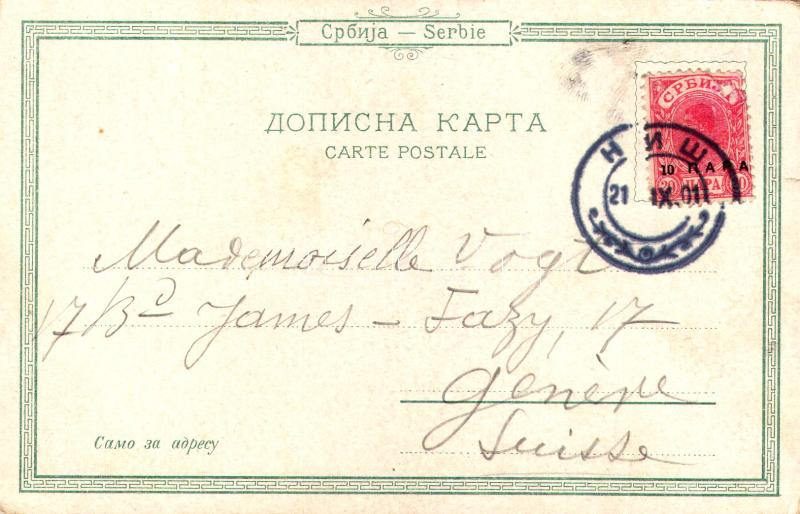 Србија — Serbie
ДОПИСНА КАРТА
CARTE POSTALE
СРБИЈА
10 ПАРА
20 ПАРА 20
НИШ
21 IX.01
Mademoiselle Vogt
17/Bd James-Fazy, 17
Genève
Suisse
Само за адресу